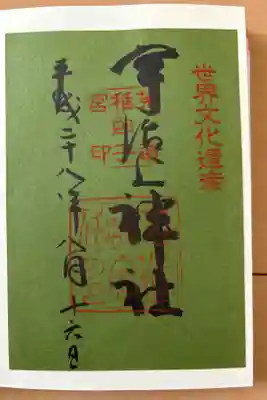 世界文化遺産
宇治上神社
平成二十八年八月十六日